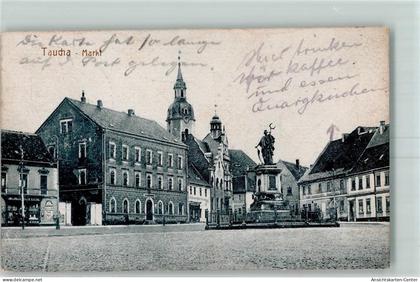 Die Karte hat so lange
Taucha - Markt
auf d. Post gelegen
Hier trinken
wir Kaffee
und essen
Quarkkuchen
Ansichtskarten-Center